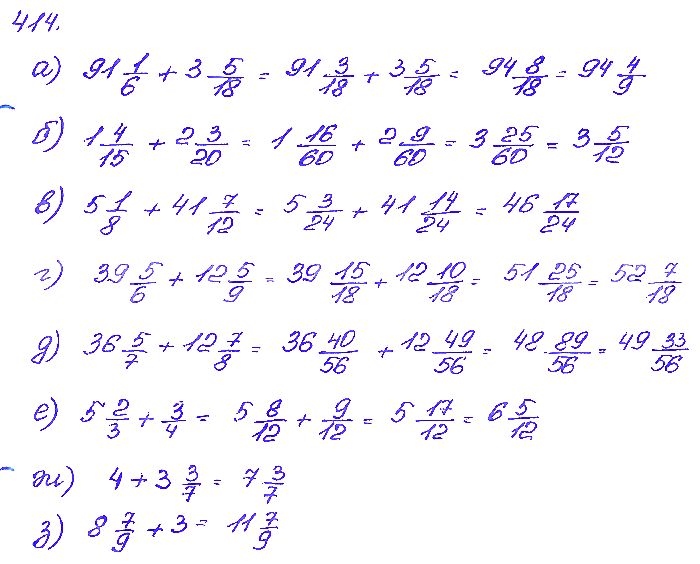 414.
а) 91 1/6 + 3 5/18 = 91 3/18 + 3 5/18 = 94 8/18 = 94 4/9
б) 1 4/15 + 2 3/20 = 1 16/60 + 2 9/60 = 3 25/60 = 3 5/12
в) 5 1/8 + 41 7/12 = 5 3/24 + 41 14/24 = 46 17/24
г) 39 5/6 + 12 5/9 = 39 15/18 + 12 10/18 = 51 25/18 = 52 7/18
д) 36 5/7 + 12 7/8 = 36 40/56 + 12 49/56 = 48 89/56 = 49 33/56
е) 5 2/3 + 3/4 = 5 8/12 + 9/12 = 5 17/12 = 6 5/12
ж) 4 + 3 3/7 = 7 3/7
з) 8 7/9 + 3 = 11 7/9